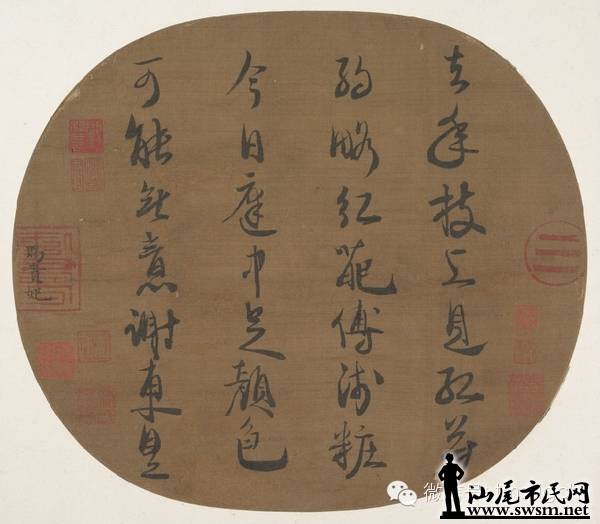 去年枝上見紅芳
約略紅葩傅淺粧
今日庭中足顏色
可能無意謝東皇
賜貴妃
微
汕尾市民网
www.swsm.net